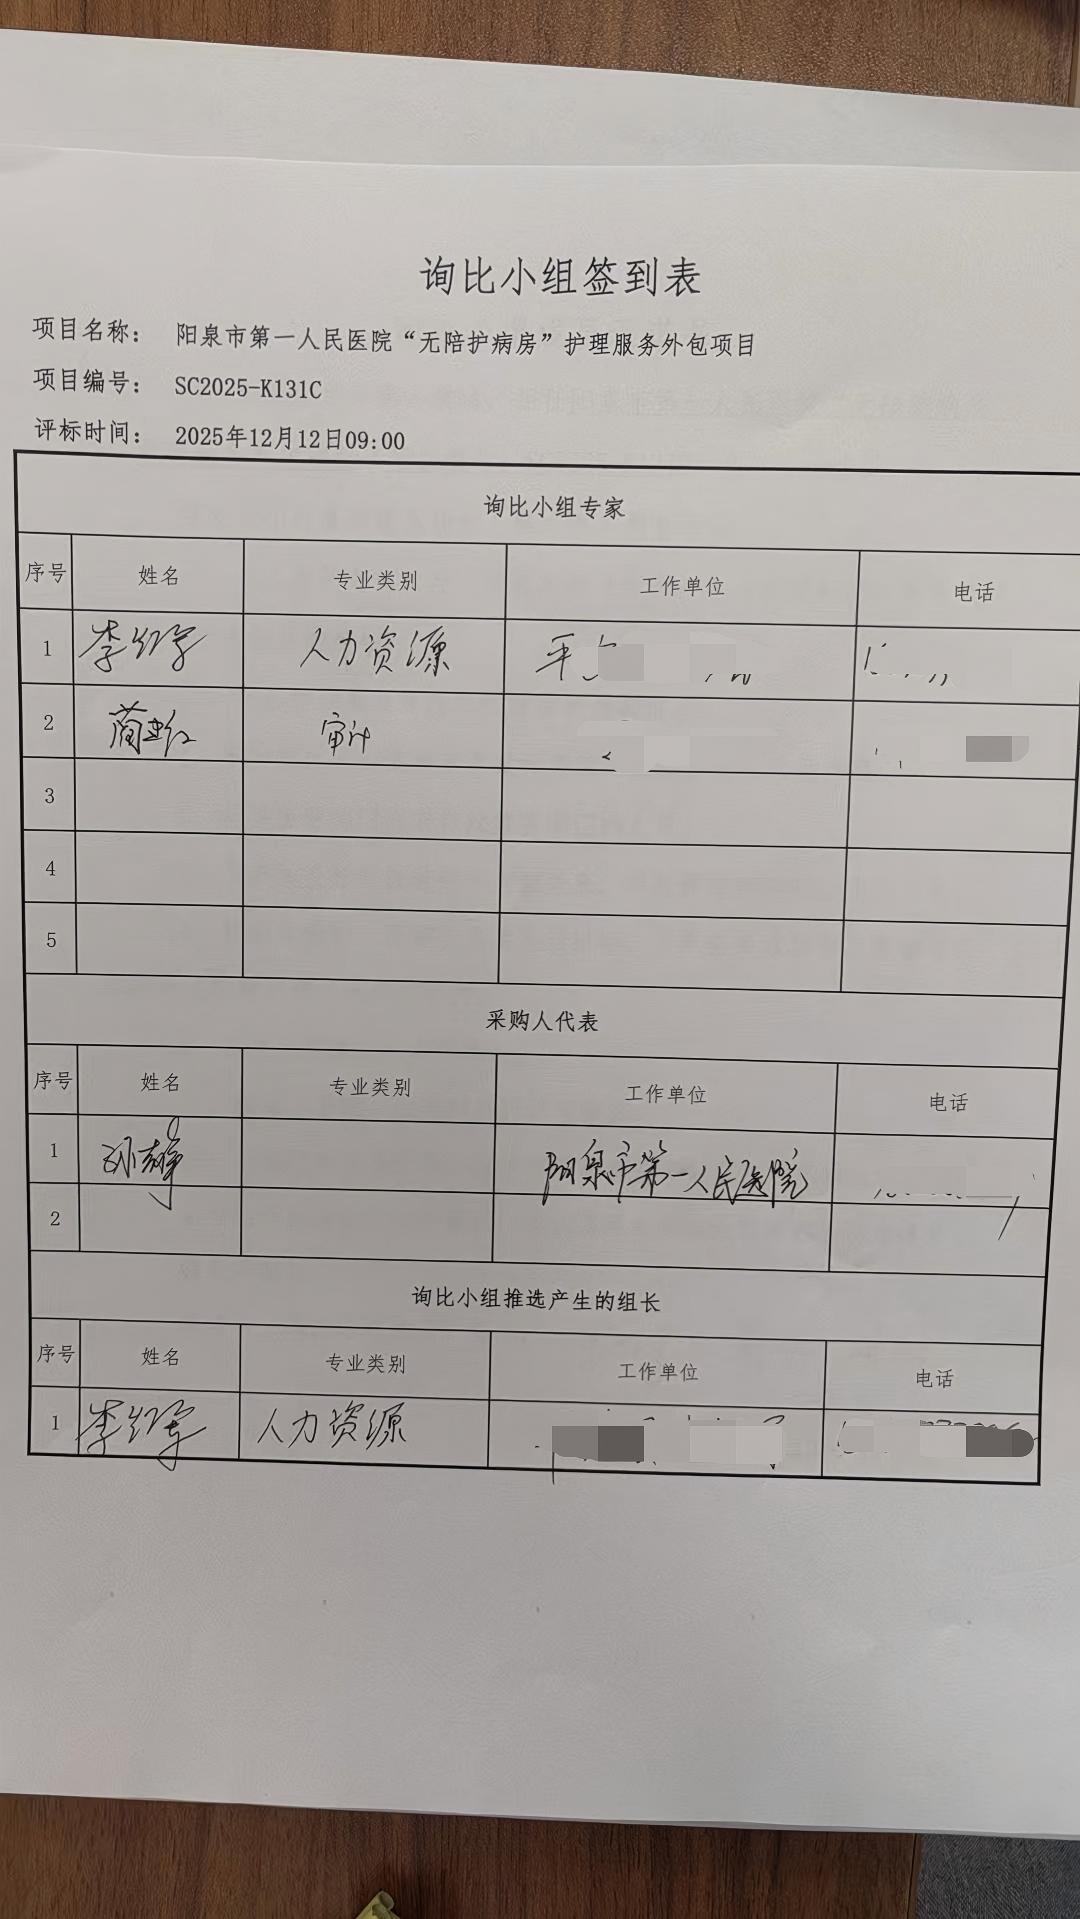 询比小组签到表
项目名称： 阳泉市第一人民医院“无陪护病房”护理服务外包项目
项目编号： SC2025-K131C
评标时间： 2025年12月12日09:00
询比小组专家
序号 姓名 专业类别 工作单位 电话
1 李红军 人力资源 平
2 审计
3
4
5
采购人代表
序号 姓名 专业类别 工作单位 电话
1 阳泉市第一人民医院
2
询比小组推选产生的组长
序号 姓名 专业类别 工作单位 电话
1 李红军 人力资源